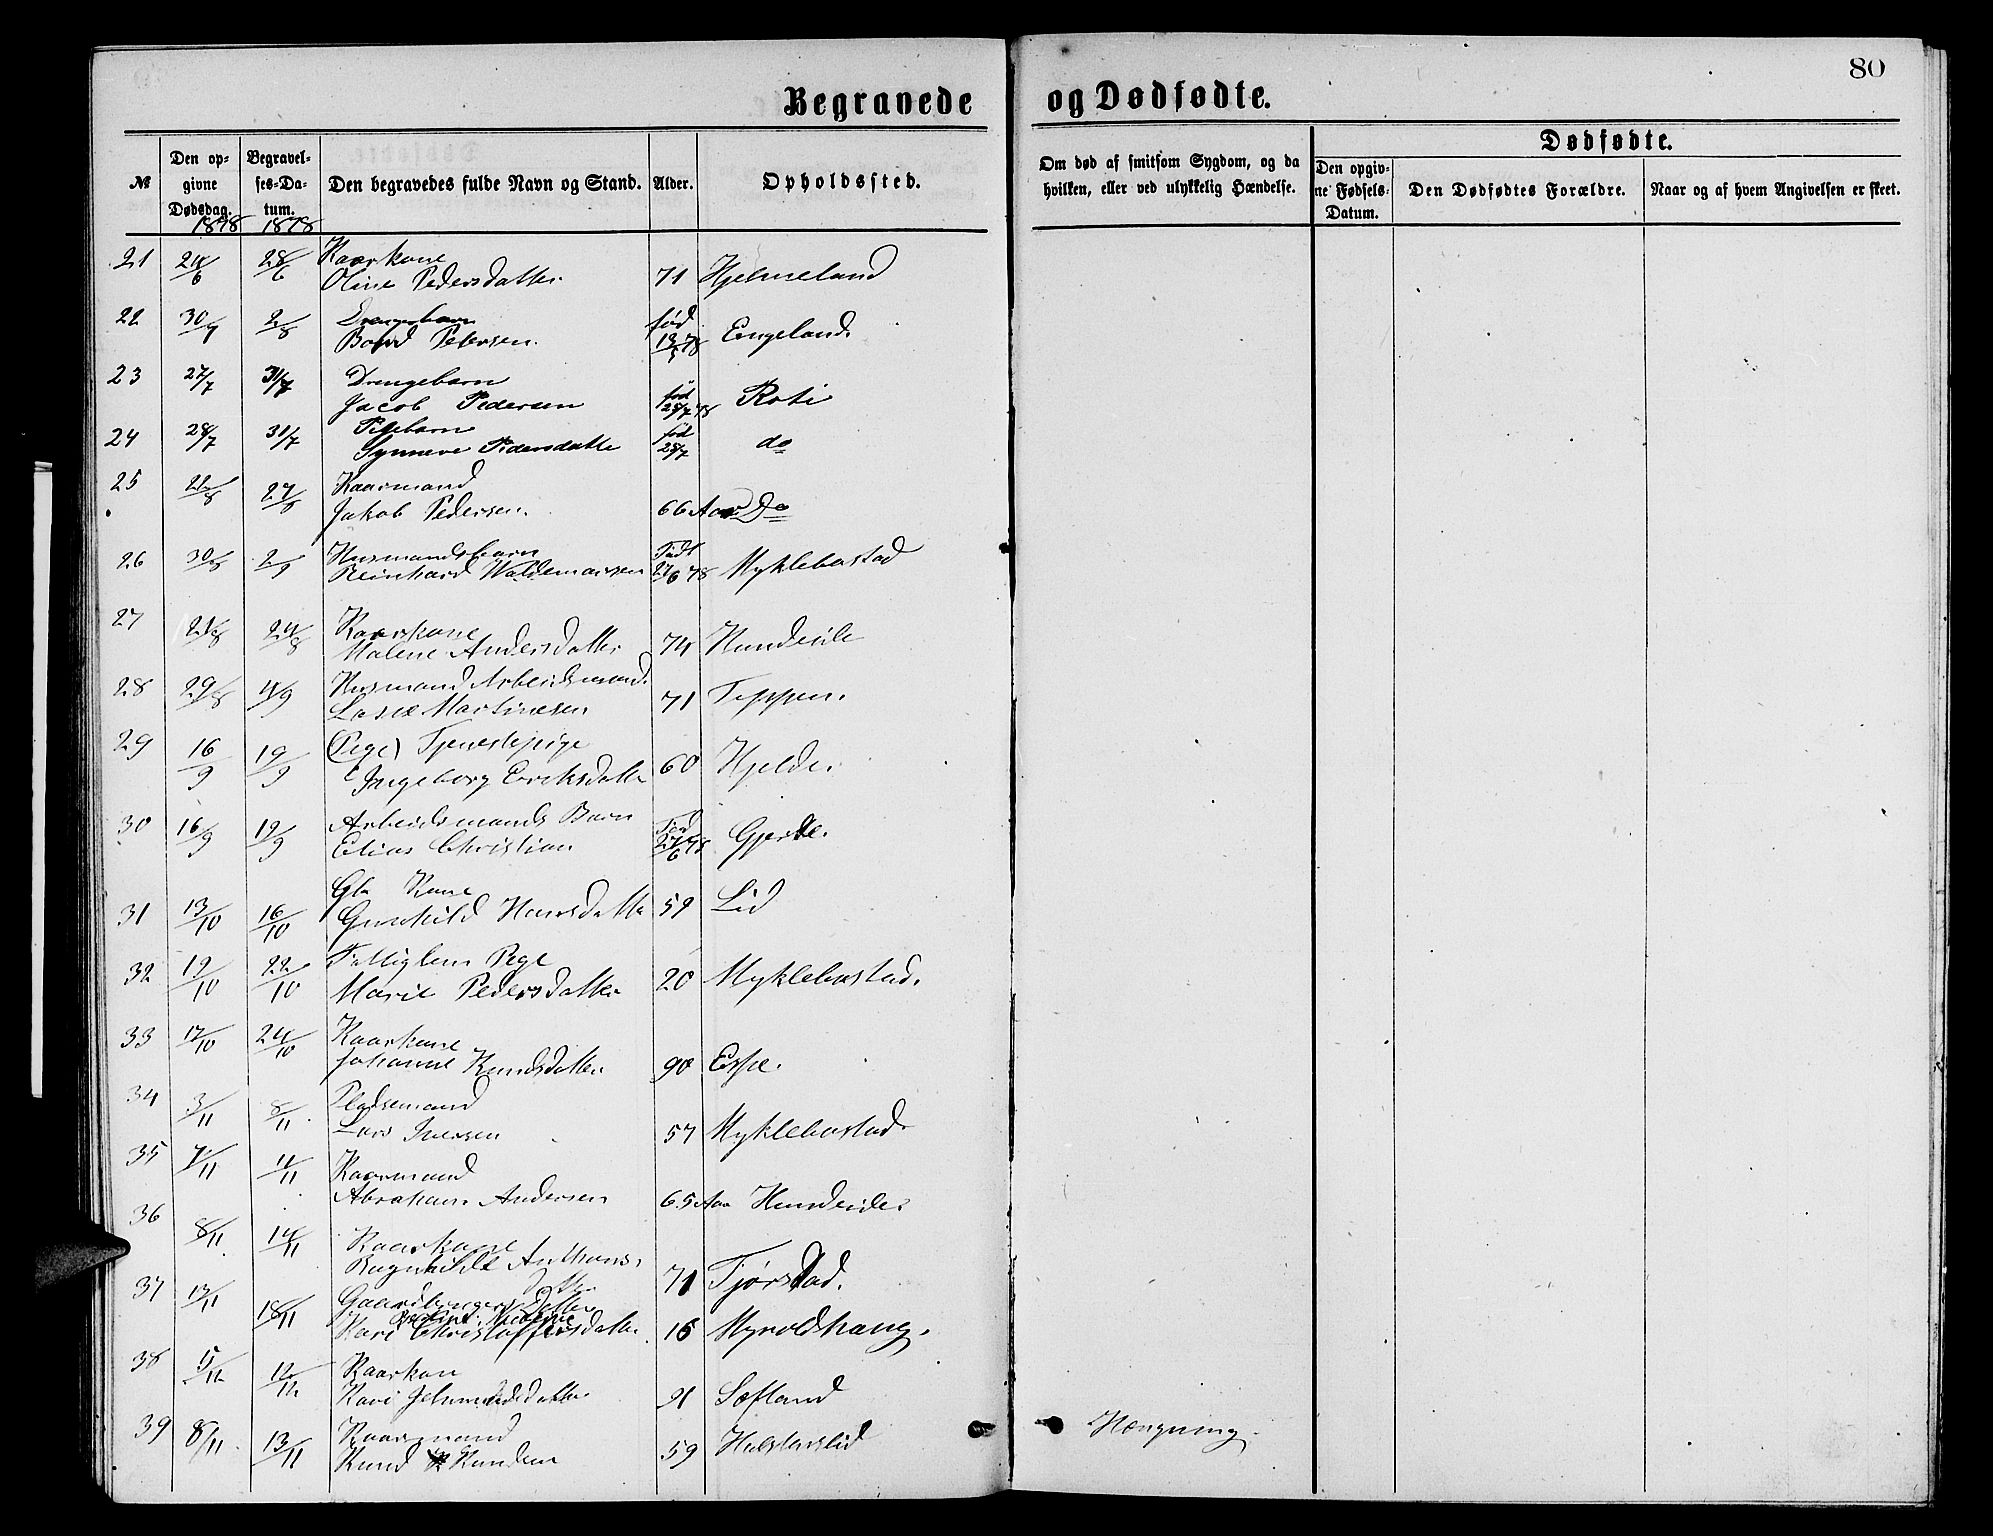 80
Begravede og Dødfødte.
№
Den opgivne Dødsdag.
Begravelses-Datum.
Den begravedes fulde Navn og Stand.
Alder.
Opholdssted.
Om død af smitsom Sygdom, og da hvilken, eller ved ulykkelig Hændelse.
Dødfødte.
Den opgivne Fødsels-Datum.
Den Dødfødtes Forældre.
Naar og af hvem Angivelsen er skeet.
1878 1878
21 24/6 28/6 Kaarkone
Oline Pedersdatter 71 Hjelmeland
22 2/8 Drengebarn
Petersen. fød Engeland.
23 27/7 31/7 Drengebarn
Jacob Pedersen fød 25/7 78 Roti
24 28/7 31/7 Pigebarn
Synneve Pedersdatte fød 25/7 do
25 22/8 27/8 Kaarmand
Jakob Pedersen. 66 Aar Do
26 30/8 2/9 Husmandsbarn
Reinhard Waldemarsen Født 27/6 78 Myklebostad
27 21/8 24/8 Kaarkone
Malene Andersdatter 74 Hundeide
28 29/8 4/9 Husmand Arbeidsmand.
Lasse Martinesen 71 Teppen.
29 16/9 19/9 (Pige) Tjenestepige
Ingeborg Eriksdatte 60 Hjelde
30 16/9 19/9 Arbeidsmands Barn
Elias Christian Fød 27/6 78 Gjerde.
31 13/10 16/10 Gb Kone
Gunhild Hansdatte 59 Lid
32 19/10 22/10 Fattiglem Pige
Marie Pedersdatter 20 Myklebostad.
33 17/10 24/10 Kaarkone
Johanne Knudsdatter 90 Espe.
34 3/11 8/11 Pladsemand
Lars Iversen 57 Myklebostad.
35 7/11 11/11 Kaarmand
Abraham Andersen 65 Aar Hundeide
36 8/11 14/11 Kaarkone
Ragnhilde Anthons-
datter 71 Tjørstad.
37 13/11 18/11 Gaardbrugers Datter
Kari Christoffersdatter 16 Myroldhaug.
38 5/12 12/12 Kaarkon
Kari 91 Sætland
39 8/11 13/11 Kaarmand
Knud Knudsen 59 Hængning